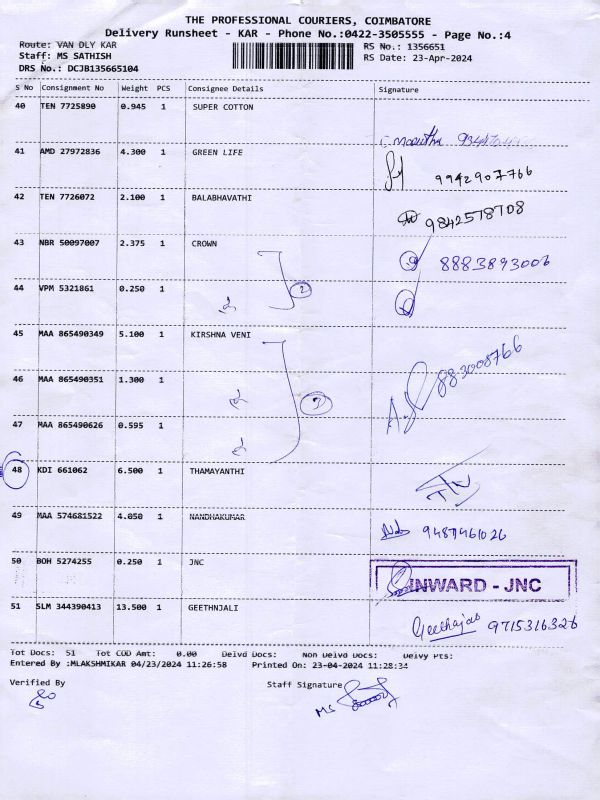 THE PROFESSIONAL COURIERS, COIMBATORE
Delivery Runsheet - KAR - Phone No.:0422-3505555 - Page No.:4
Route: VAN DLY KAR
RS No.: 1356651
Staff: MS SATHISH
RS Date: 23-Apr-2024
DRS No.: DCJB135665104
S No Consignment No Weight PCS Consignee Details Signature
40 TEN 7725890 0.945 1 SUPER COTTON
41 AMD 27972836 4.300 1 GREEN LIFE
9942907766
42 TEN 7726072 2.100 1 BALABHAVATHI
9842578708
43 NBR 50097007 2.375 1 CROWN
8883893006
44 VPM 5321861 0.250 1
2
45 MAA 865490349 5.100 1 KIRSHNA VENI
883008766
46 MAA 865490351 1.300 1
47 MAA 865490626 0.595 1
48 KDI 661062 6.500 1 THAMAYANTHI
49 MAA 574681522 4.050 1 NANDHAKUMAR
9487461026
50 BOH 5274255 0.250 1 JNC
INWARD - JNC
51 SLM 344390413 13.500 1 GEETHNJALI
9715316326
Tot Docs: 51 Tot COD Amt: 0.00 Delvd Docs: Non Delvd Docs: Delvy Pts:
Entered By :MLAKSHMIKAR 04/23/2024 11:26:58 Printed On: 23-04-2024 11:28:34
Verified By
Staff Signature
MS